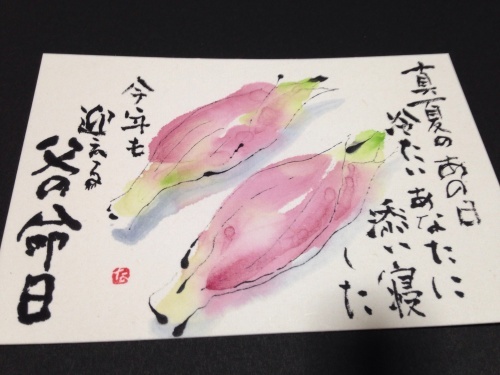 真夏のあの日
冷たいあなたに
添い寝
した
今年も
迎える
父の命日